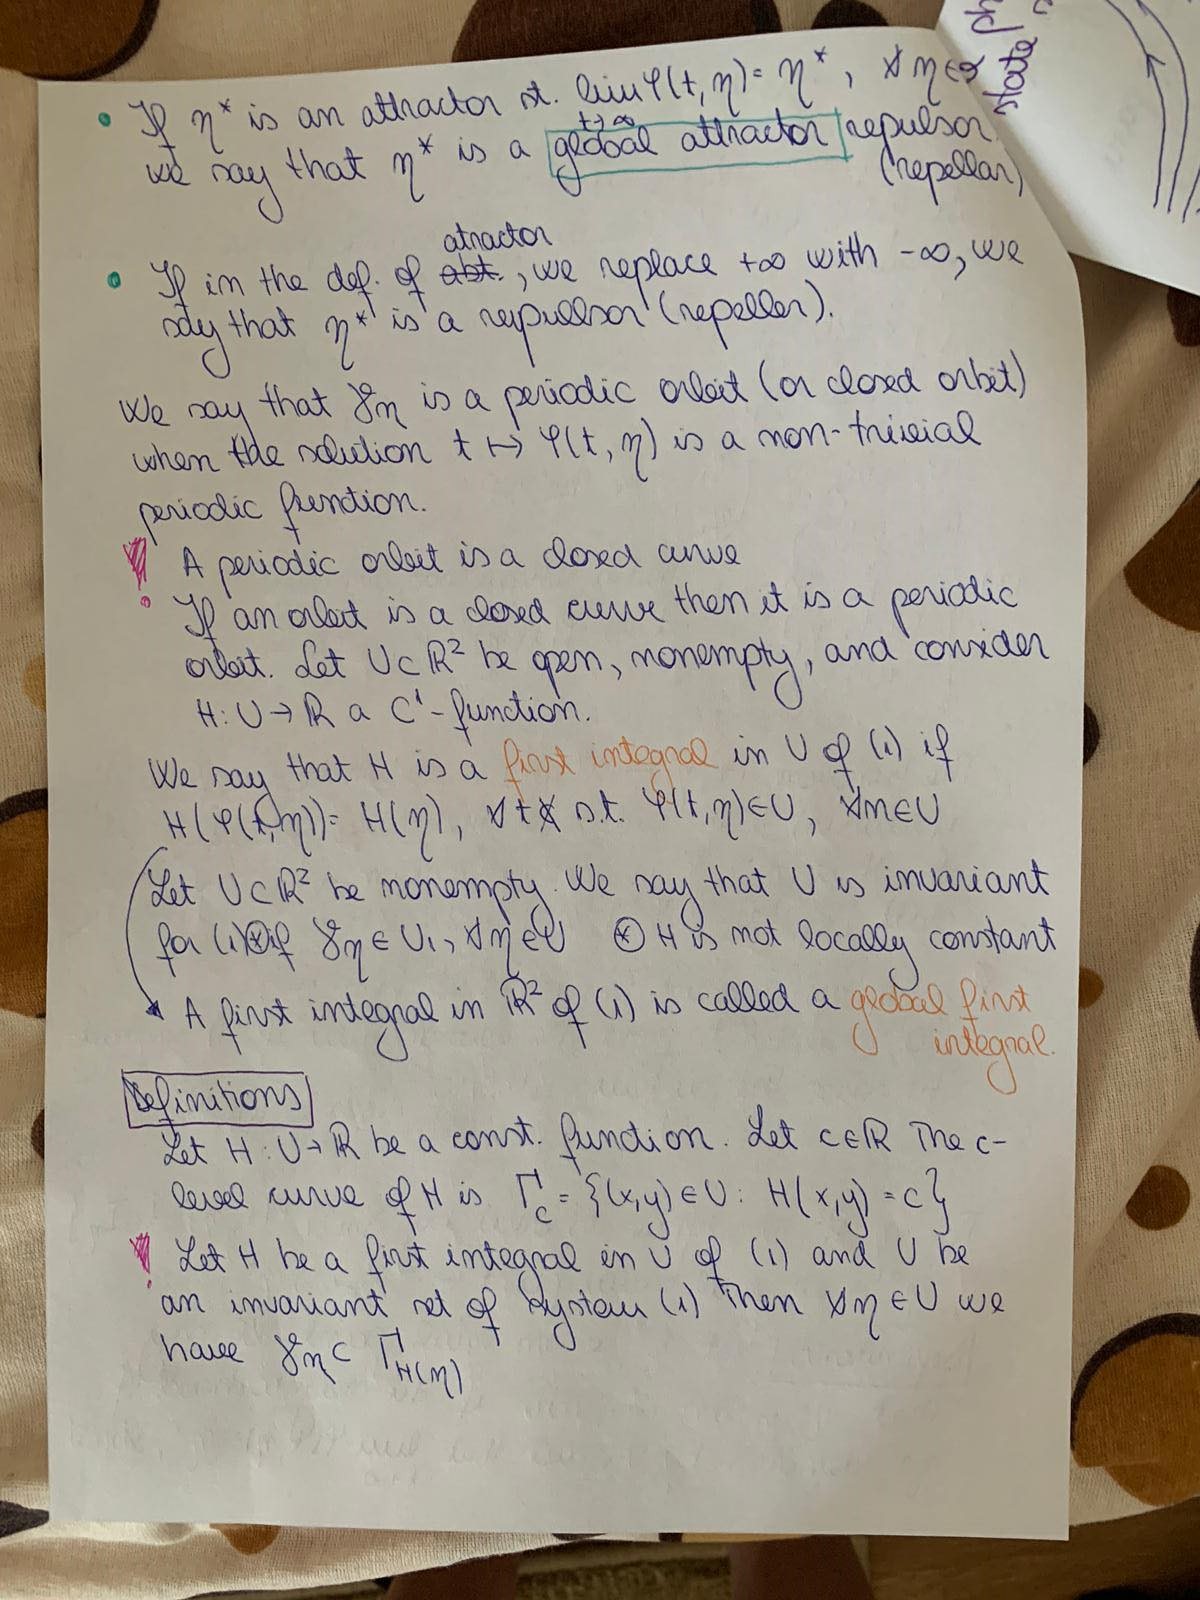 • If η* is an attractor st. lim φ(t, η) = η*, ∀ η ∈
t→∞
we say that η* is a global attractor repulsor
(repellar)
atractor
• If in the def. of abt., we replace +∞ with -∞, we
say that η* is a repullsor (repeller).
We say that γη is a periodic orbit (or closed orbit)
when the solution t ↦ φ(t, η) is a non-trivial
periodic function.
! A periodic orbit is a closed curve
If an orbit is a closed curve then it is a periodic
orbit. Let U⊂ℝ² be open, nonempty, and consider
H: U→ℝ a C¹-function.
We say that H is a first integral in U of (1) if
H(φ(t,η)) = H(η), ∀ t s.t. φ(t,η)∈U, ∀η∈U
Let U⊂ℝ² be nonempty. We say that U is invariant
for (1) ⊛ if γη ∈ U, ∀η∈U ⊛ H is not locally constant
→ A first integral in ℝ² of (1) is called a global first
integral.
Definitions
Let H: U→ℝ be a const. function. Let c∈ℝ The c-
level curve of H is Γc = {(x,y)∈U: H(x,y) = c}
! Let H be a first integral in U of (1) and U be
an invariant set of system (1) Then ∀η∈U we
have γη ⊂ ΓH(η)
state